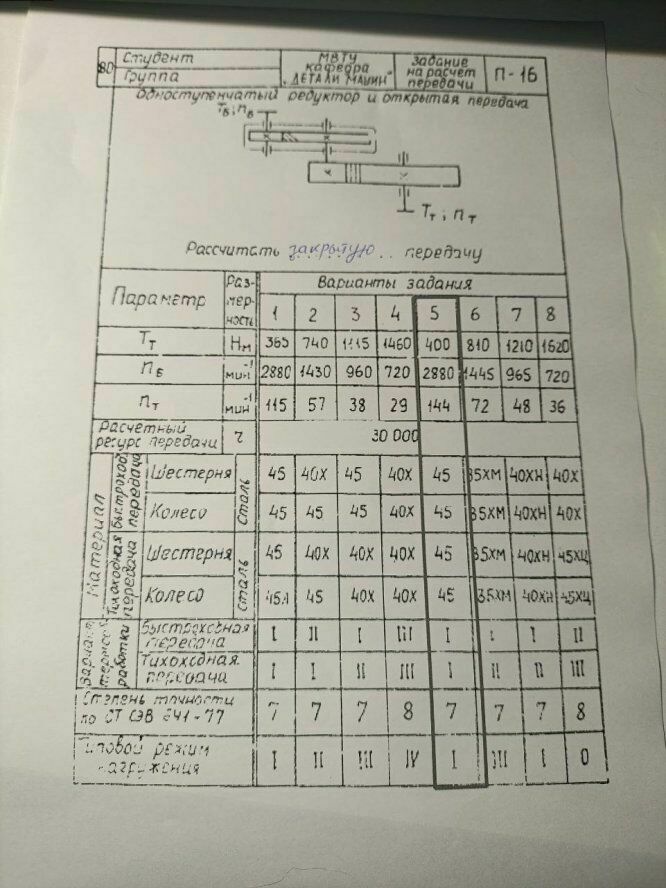 80 Студент МВТУ Задание П-16
Группа кафедра на расчет
"ДЕТАЛИ МАШИН" передачи
Одноступенчатый редуктор и открытая передача
Тб; nб
Тт; nт
Рассчитать закрытую передачу
Параметр Размерность Варианты задания
1 2 3 4 5 6 7 8
Тт Нм 365 740 1115 1460 400 810 1210 1620
nб мин-1 2880 1430 960 720 2880 1445 965 720
nт мин-1 115 57 38 29 144 72 48 36
Расчетный ресурс передачи ч 30 000
Материал
Быстроход. передача
Шестерня сталь 45 40Х 45 40Х 45 35ХМ 40ХН 40Х
Колесо 45 45 45 40Х 45 35ХМ 40ХН 40Х
Тихоходная передача
Шестерня сталь 45 40Х 40Х 40Х 45 35ХМ 40ХН 45ХЦ
Колесо 45Л 45 40Х 40Х 45 35ХМ 40ХН 45ХЦ
Вариант термообработки
Быстроходная передача I II I III I I I II
Тихоходная передача I I II III I II II III
Степень точности
по СТ СЭВ 641-77 7 7 7 8 7 7 7 8
Типовой режим
нагружения I II III IV I III I 0